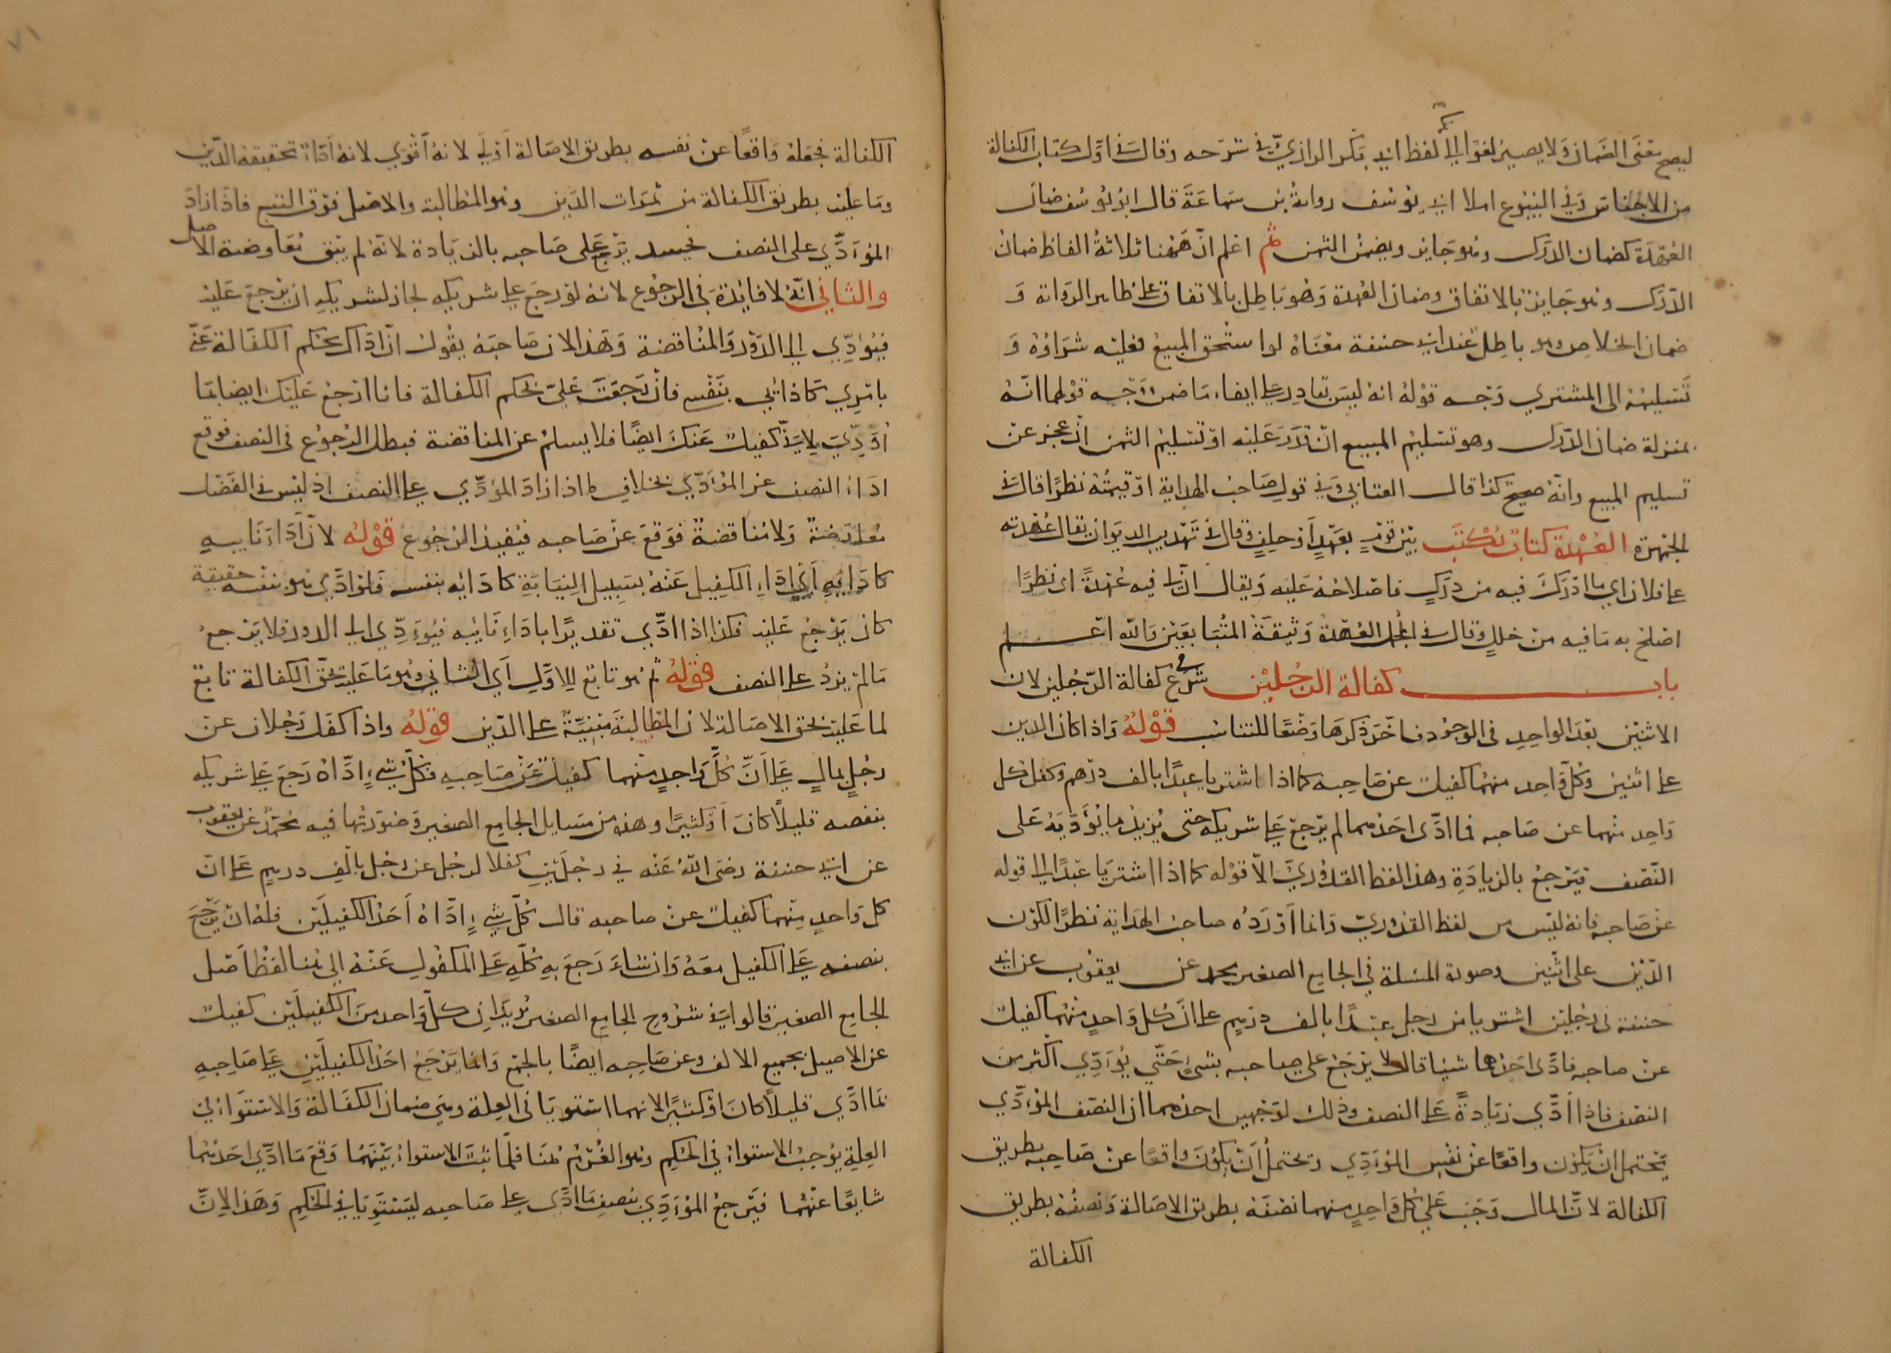 ليصح بمعنى الضمان ولا يصير لغوا الى هنا لفظ ابي بكر الرازي في شرحه وقال في اول كتاب الكفالة
من الاجناس وفي الينبوع املا ابي يوسف رواية بن سماعة قال ابو يوسف ضمان
العهدة كضمان الدرك وهو جايز ويضمن الثمن ثم اعلم ان ههنا ثلاثة الفاظ ضمان
الدرك وهو جايز بالاتفاق وضمان العهدة وهو باطل بالاتفاق على ظاهر الرواية و
ضمان الخلاص وهو باطل عند ابي حنيفة معناه لو استحق المبيع فعليه شراؤه و
تسليمه الى المشتري وجه قوله انه ليس بقادر على ايفاء ما ضمن ووجه قولهما انه
بمنزلة ضمان الدرك وهو تسليم المبيع ان قدر عليه او تسليم الثمن ان عجز عن
تسليم المبيع وانه صحيح كذا قال العتابي وفي قول صاحب الهداية او قيمته نظر قال في
الجمهرة العهدة كتاب يكتب بين قوم بعهد او حلف وقال في تهذيب الديوان يقال عهدته
على فلان اي ما ادرك فيه من درك فاصلاحه عليه ويقال ان فيه عهدة اي نظرا
اصلح به ما فيه من خلل وقال في المجمل العهدة وثيقة المتبايعين والله اعلم
باب كفالة الرجلين شرع في كفالة الرجلين لان
الاثنين بعد الواحد في الوجود فاخر ذكرها وضعا للتناسب قوله واذا كان الدين
على اثنين وكل واحد منهما كفيل عن صاحبه كما اذا اشتريا عبدا بالف درهم وكفل كل
واحد منهما عن صاحبه فما ادى احدهما لم يرجع على شريكه حتى يزيد ما يؤديه على
النصف فيرجع بالزيادة وهذا لفظ القدوري الا قوله كما اذا اشتريا عبدا الى قوله
عن صاحبه فانه ليس من لفظ القدوري وانما اورده صاحب الهداية نظرا لكون
الدين على اثنين وصورة المسئلة في الجامع الصغير محمد عن يعقوب عن ابي
حنيفة في رجلين اشتريا من رجل عبدا بالف درهم على ان كل واحد منهما كفيل
عن صاحبه فادى احدهما شيئا قال لا يرجع على صاحبه بشئ حتى يؤدي اكثر من
النصف فاذا ادى زيادة على النصف وذلك لوجهين احدهما ان النصف المؤدي
يحتمل ان يكون واقعا عن نفس المؤدي ويحتمل ان يكون واقعا عن صاحبه بطريق
الكفالة لان المال وجب على كل واحد منهما نصفه بطريق الاصالة ونصفه بطريق
الكفالة
الكفالة فجعله واقعا عن نفسه بطريق الاصالة اولى لانه اقوى لانه اداء تحقيقه الدين
وما عليه بطريق الكفالة من ثمرات الدين وهو المطالبة والاصل فوق التبع فاذا زاد
المؤدي على النصف فحينئذ يرجع على صاحبه بالزيادة لانه لم يبق معاوضة الاصل
والثاني انه لا فائدة في الرجوع لانه لو رجع على شريكه لجاز لشريكه ان يرجع عليه
فيؤدي الى الدور والمناقضة وهذا لان صاحبه يقول ان اداك بحكم الكفالة عني
بامري كادائي بنفسي فان رجعت علي بحكم الكفالة فانا ارجع عليك ايضا بما
اديت لاني كفيل عنك ايضا فلا يسلم عن المناقضة فبطل الرجوع في النصف فوقع
اداء النصف عن المؤدي بخلاف ما اذا زاد المؤدي على النصف اذ ليس في الفضل
معارضة ولا مناقضة فوقع عن صاحبه فيفيد الرجوع قوله لان اداء نايبه
كادائه اي اداء الكفيل عنه بسبيل النيابة كادائه بنفسه فلو ادى هو بنفسه حقيقة
كان يرجع عليه فكذا اذا ادى تقديرا باداء نايبه فيؤدي الى الدور فلا يرجع
ما لم يزد على النصف قوله ثم هو تابع للاول اي الثاني وهو ما عليه بحق الكفالة تابع
لما عليه بحق الاصالة لان المطالبة مبنية على الدين قوله واذا كفل رجلان عن
رجل بمال على ان كل واحد منهما كفيل عن صاحبه فكل شيء اداه رجع على شريكه
بنصفه قليلا كان او كثيرا وهذه من مسايل الجامع الصغير وصورتها فيه محمد عن يعقوب
عن ابي حنيفة رضى الله عنه في رجلين كفلا لرجل عن رجل بالف درهم على ان
كل واحد منهما كفيل عن صاحبه قال كل شيء اداه احد الكفيلين فله ان يرجع
بنصفه على الكفيل معه وان شاء رجع به كله على المكفول عنه الى هنا لفظ اصل
الجامع الصغير قالوا في شروح الجامع الصغير يريد ان كل واحد من الكفيلين كفيل
عن الاصيل بجميع الالف وعن صاحبه ايضا بالجمع وانما يرجع احد الكفيلين على صاحبه
بما ادى قليلا كان او كثيرا لانهما استويا في العلة وهي ضمان الكفالة والاستواء في
العلة يوجب الاستواء في الحكم وهو الغرم هنا فلما ثبت الاستواء بينهما وقع ما ادى احدهما
شايعا عنهما فيرجع المؤدي بنصف ما ادى على صاحبه ليستويا في الحكم وهذا لان